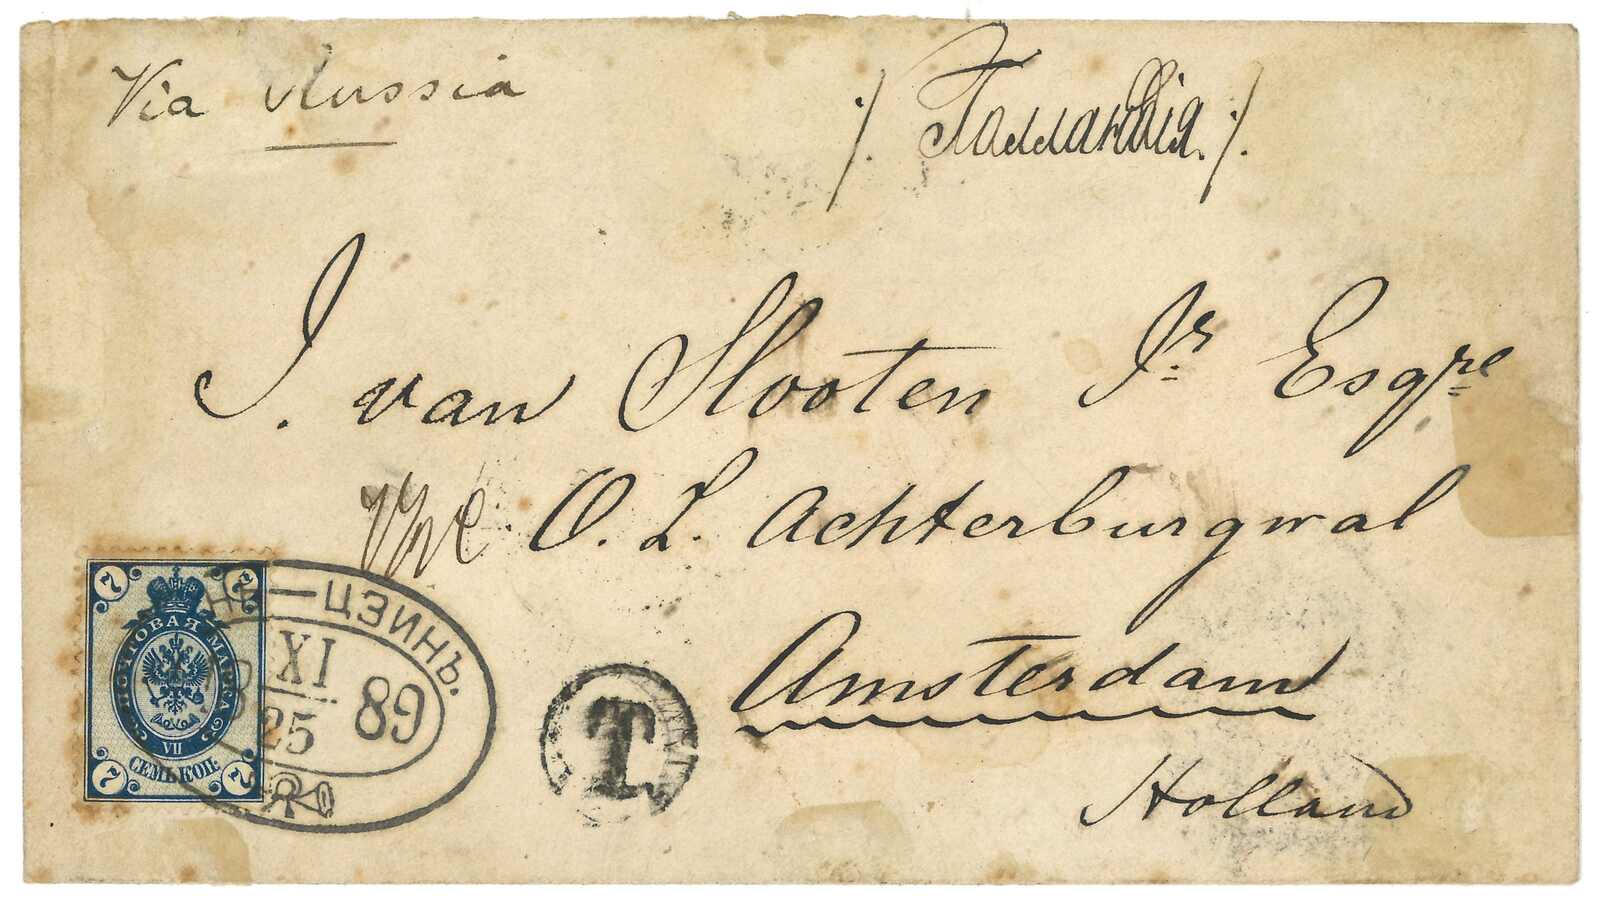 Via Russia
./. Голландія ./.
J. van Slooten Jr Esqre
O. Z. Achterburgwal
Amsterdam
Holland
7 7
ПОЧТОВАЯ МАРКА
VII
СЕМЬ КОП.
7 7
НЬ — ЦЗИНЬ.
XI
25
89
T